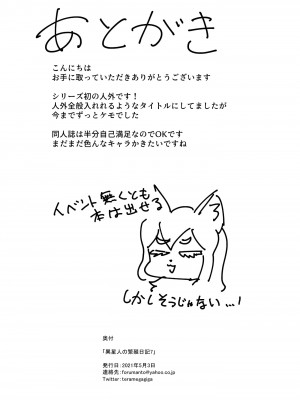 あとがき
こんにちは
お手に取っていただきありがとうございます
シリーズ初の人外です！
人外全般入れれるようなタイトルにしてましたが
今までずっとケモでした
同人誌は半分自己満足なのでOKです
まだまだ色んなキャラかきたいですね
イベント無くとも
本は出せる
しかしそうじゃない…!
奥付
「異星人の繁殖日記7」
発行日：2021年5月3日
連絡先：forumanto@yahoo.co.jp
Twitter：teramegagiga